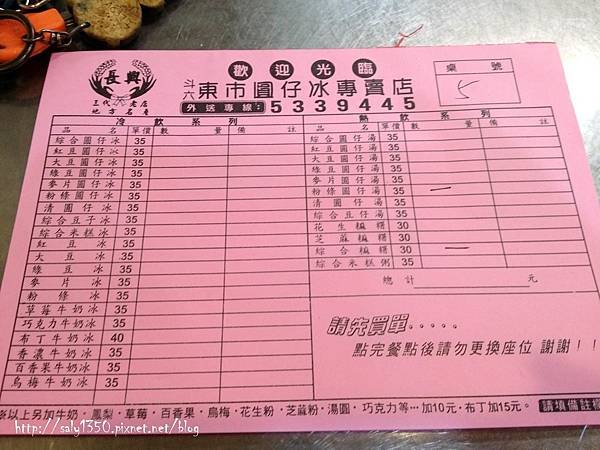 歡迎光臨
長興
三代老店
地方名產
斗六東市圓仔冰專賣店
外送專線:5339445
桌號
5
冷飲系列
品名 單價 數量 備註
綜合圓仔冰 35
紅豆圓仔冰 35
大豆圓仔冰 35
綠豆圓仔冰 35
麥片圓仔冰 35
粉條圓仔冰 35
清圓仔冰 35
綜合豆子冰 35
綜合米糕冰 35
紅豆冰 35
大豆冰 35
綠豆冰 35
麥片冰 35
粉條冰 35
草莓牛奶冰 35
巧克力牛奶冰 35
布丁牛奶冰 40
香濃牛奶冰 35
百香果牛奶冰 35
烏梅牛奶冰 35
熱飲系列
品名 單價 數量 備註
綜合圓仔湯 35
紅豆圓仔湯 35
大豆圓仔湯 35
綠豆圓仔湯 35
麥片圓仔湯 35
粉條圓仔湯 35 一
清圓仔湯 35
綜合豆仔湯 35
花生糄糬 30
芝蔴糄糬 30
綜合糄糬 30 一
綜合米糕粥 35
總計 元
請先買單.....
點完餐點後請勿更換座位 謝謝!!
※以上另加牛奶·鳳梨·草莓·百香果·烏梅·花生粉·芝蔴粉·湯圓·巧克力等…加10元·布丁加15元。 請填備註欄
http://saly1350.pixnet.net/blog